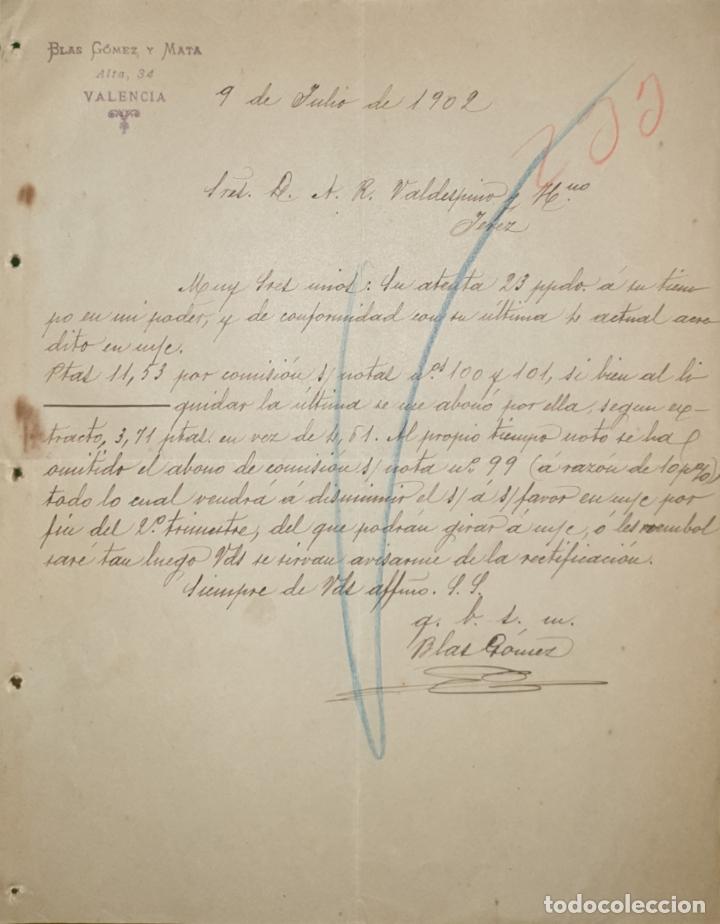 BLAS GÓMEZ Y MATA
Alta, 34
VALENCIA
9 de Julio de 1902
233
Sres. D. A. R. Valdespino y Hno
Jerez
Muy Sres mios: Su atenta 23 ppdo. á su tiem-
po en mi poder, y de conformidad con su última actual acre
dito en m/c.
Ptas 11,53 por comisión s/ notas nos 100 y 101, si bien al li
quidar la última se me abonó por ella, segun ex-
tracto, 3,71 ptas. en vez de 61. Al propio tiempo noto se ha
omitido el abono de comisión s/ nota nº 99 (á razón de 10 p%)
todo lo cual vendrá á disminuir el s/ á s/favor en m/c por
fin del 2º trimestre, del que podran girar á m/c, ó les reembol
saré tan luego Vds se sirvan avisarme de la rectificación.
Siempre de Vds affmo. S. S.
q. b. s. m.
Blas Gómez
todocoleccion